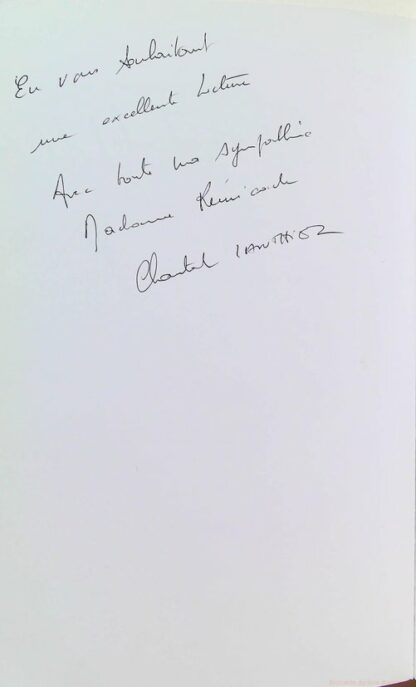 En vous souhaitant
une excellente lecture
Avec toute ma sympathie
Madame
Chantal